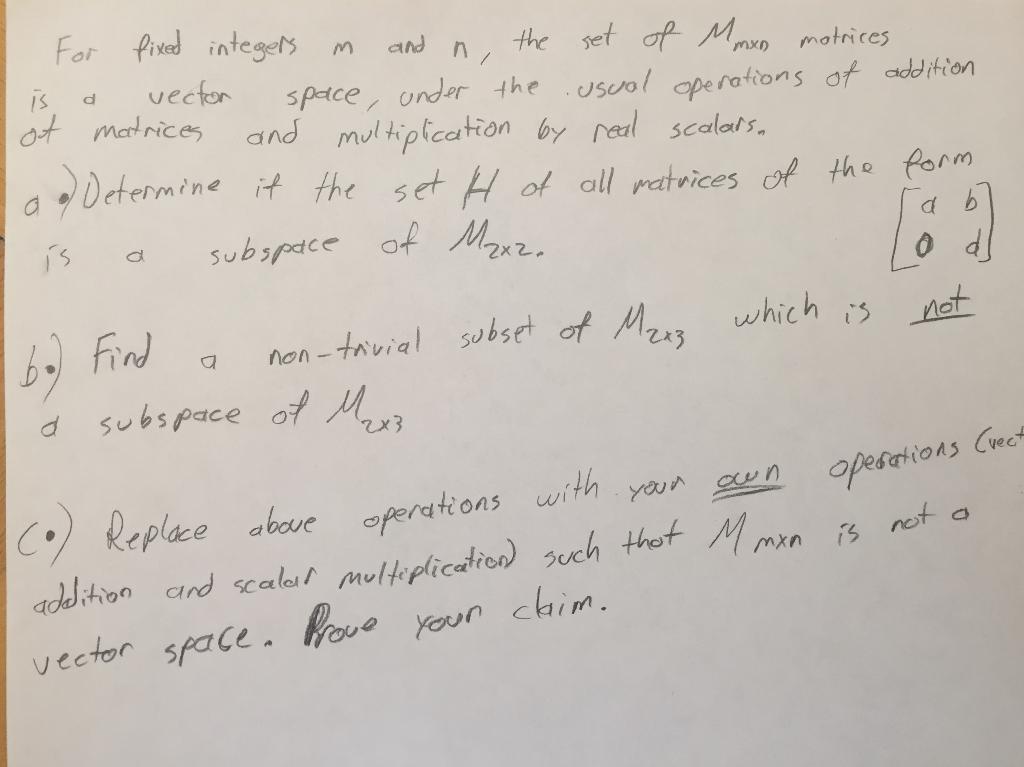 For fixed integers m and n, the set of Mmxn matrices
is a vector space, under the usual operations of addition
of matrices and multiplication by real scalars.
a.) Determine if the set H of all matrices of the form
[a b
0 d]
is a subspace of M2x2.
b.) Find a non-trivial subset of M2x3 which is not
a subspace of M2x3
c.) Replace above operations with your own operations (vect
addition and scalar multiplication) such that Mmxn is not a
vector space. Prove your claim.